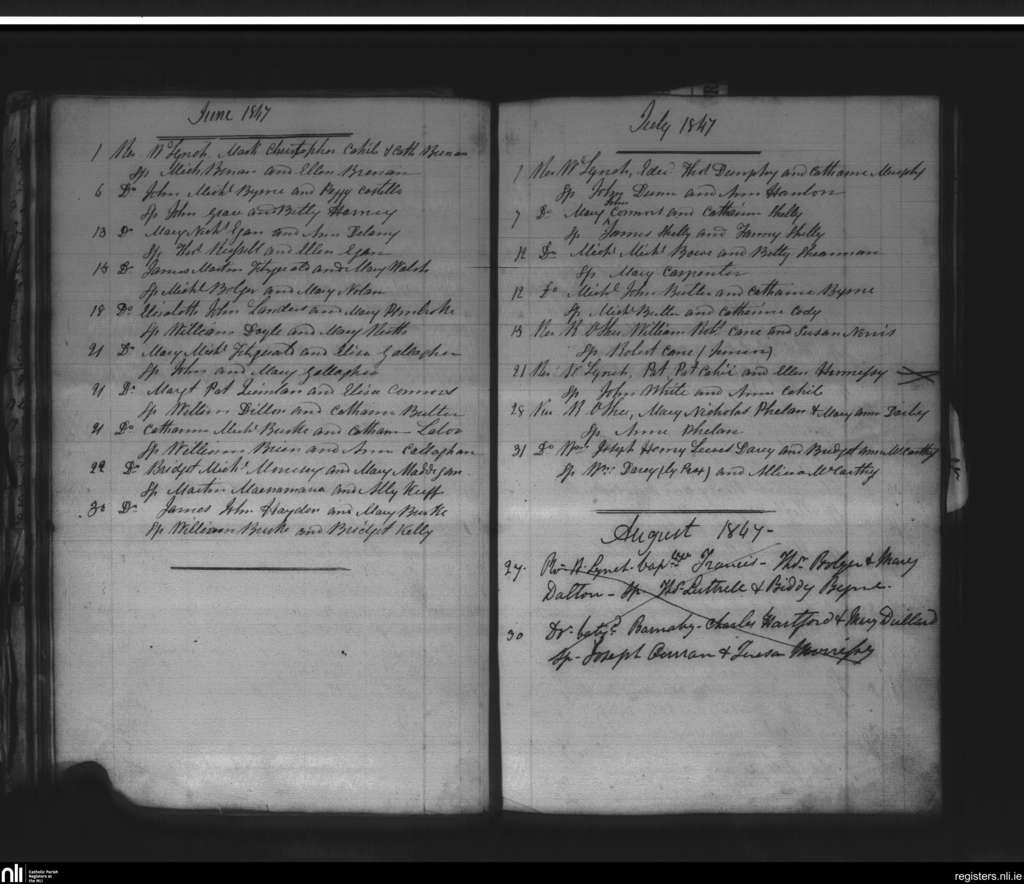 June 1847
1 Rev Wm Lynch, Mark Christopher Cahil & Cath Brenan
Sp Mich Brenan and Ellen Brenan
6 Do John Michl Byrne and Peggy Costillo
Sp John Grace and Bitty Harney
13 Do Mary Nichs Egan and Ann Delany
Sp Thos and Ellen Egan
13 Do James Martin Fitzgerald and Mary Walsh
Sp Michl Bolger and Mary Nolan
18 Do Elizabeth John Landers and Mary Pembroke
Sp William Doyle and Mary
21 Do Mary Michl Fitzgerald and Eliza Gallagher
Sp John and Mary Gallagher
21 Do Margt Pat Quinlan and Eliza Connors
Sp William Dillon and Catharine Butler
21 Do Catharine Michl Burke and Catharine Lalor
Sp William Brien and Ann Callaghan
22 Do Bridget Michl and Mary Maddigan
Sp Martin Macnamara and Ally Keeff
30 Do James John Hayden and Mary Burke
Sp William Burke and Bridget Kelly
July 1847
1 Rev Wm Lynch, Thos Dunphy and Catharine Murphy
Sp John Dunn and Ann Hanlon
7 Do Mary John Connors and Catharine Shelly
Sp James Shelly and Fanny Shelly
12 Do Michl Michl Bowe and Betty
Sp Mary Carpenter
12 Do Michl John Butler and Catharine Byrne
Sp Michl Butler and Catherine Cody
13 Rev R OKee William Robt Cane and Susan
Sp Robert Cane (Junior)
21 Rev Wm Lynch, Pat, Pat Cahil and Ellen Hennessy
Sp John White and Anne Cahil
28 Rev R OKee, Mary Nicholas Phelan & Mary Ann Darby
Sp Anne Phelan
31 Do Wm Joseph Henry Darcy and Bridget Anne McCarthy
Sp Wm Darcy (by Proxy) and Alicia McCarthy
August 1847-
27. Rev Lynch bapzed Francis - Thos Bolger & Mary
Dalton - Sp Thos Luttrell & Biddy Byrne.
30 Do bapzd Barnaby - Charles Hartford & Mary Dullard
Sp - Joseph Curran & Teresa Morrissey
nli
Catholic Parish
Registers at
the NLI
registers.nli.ie